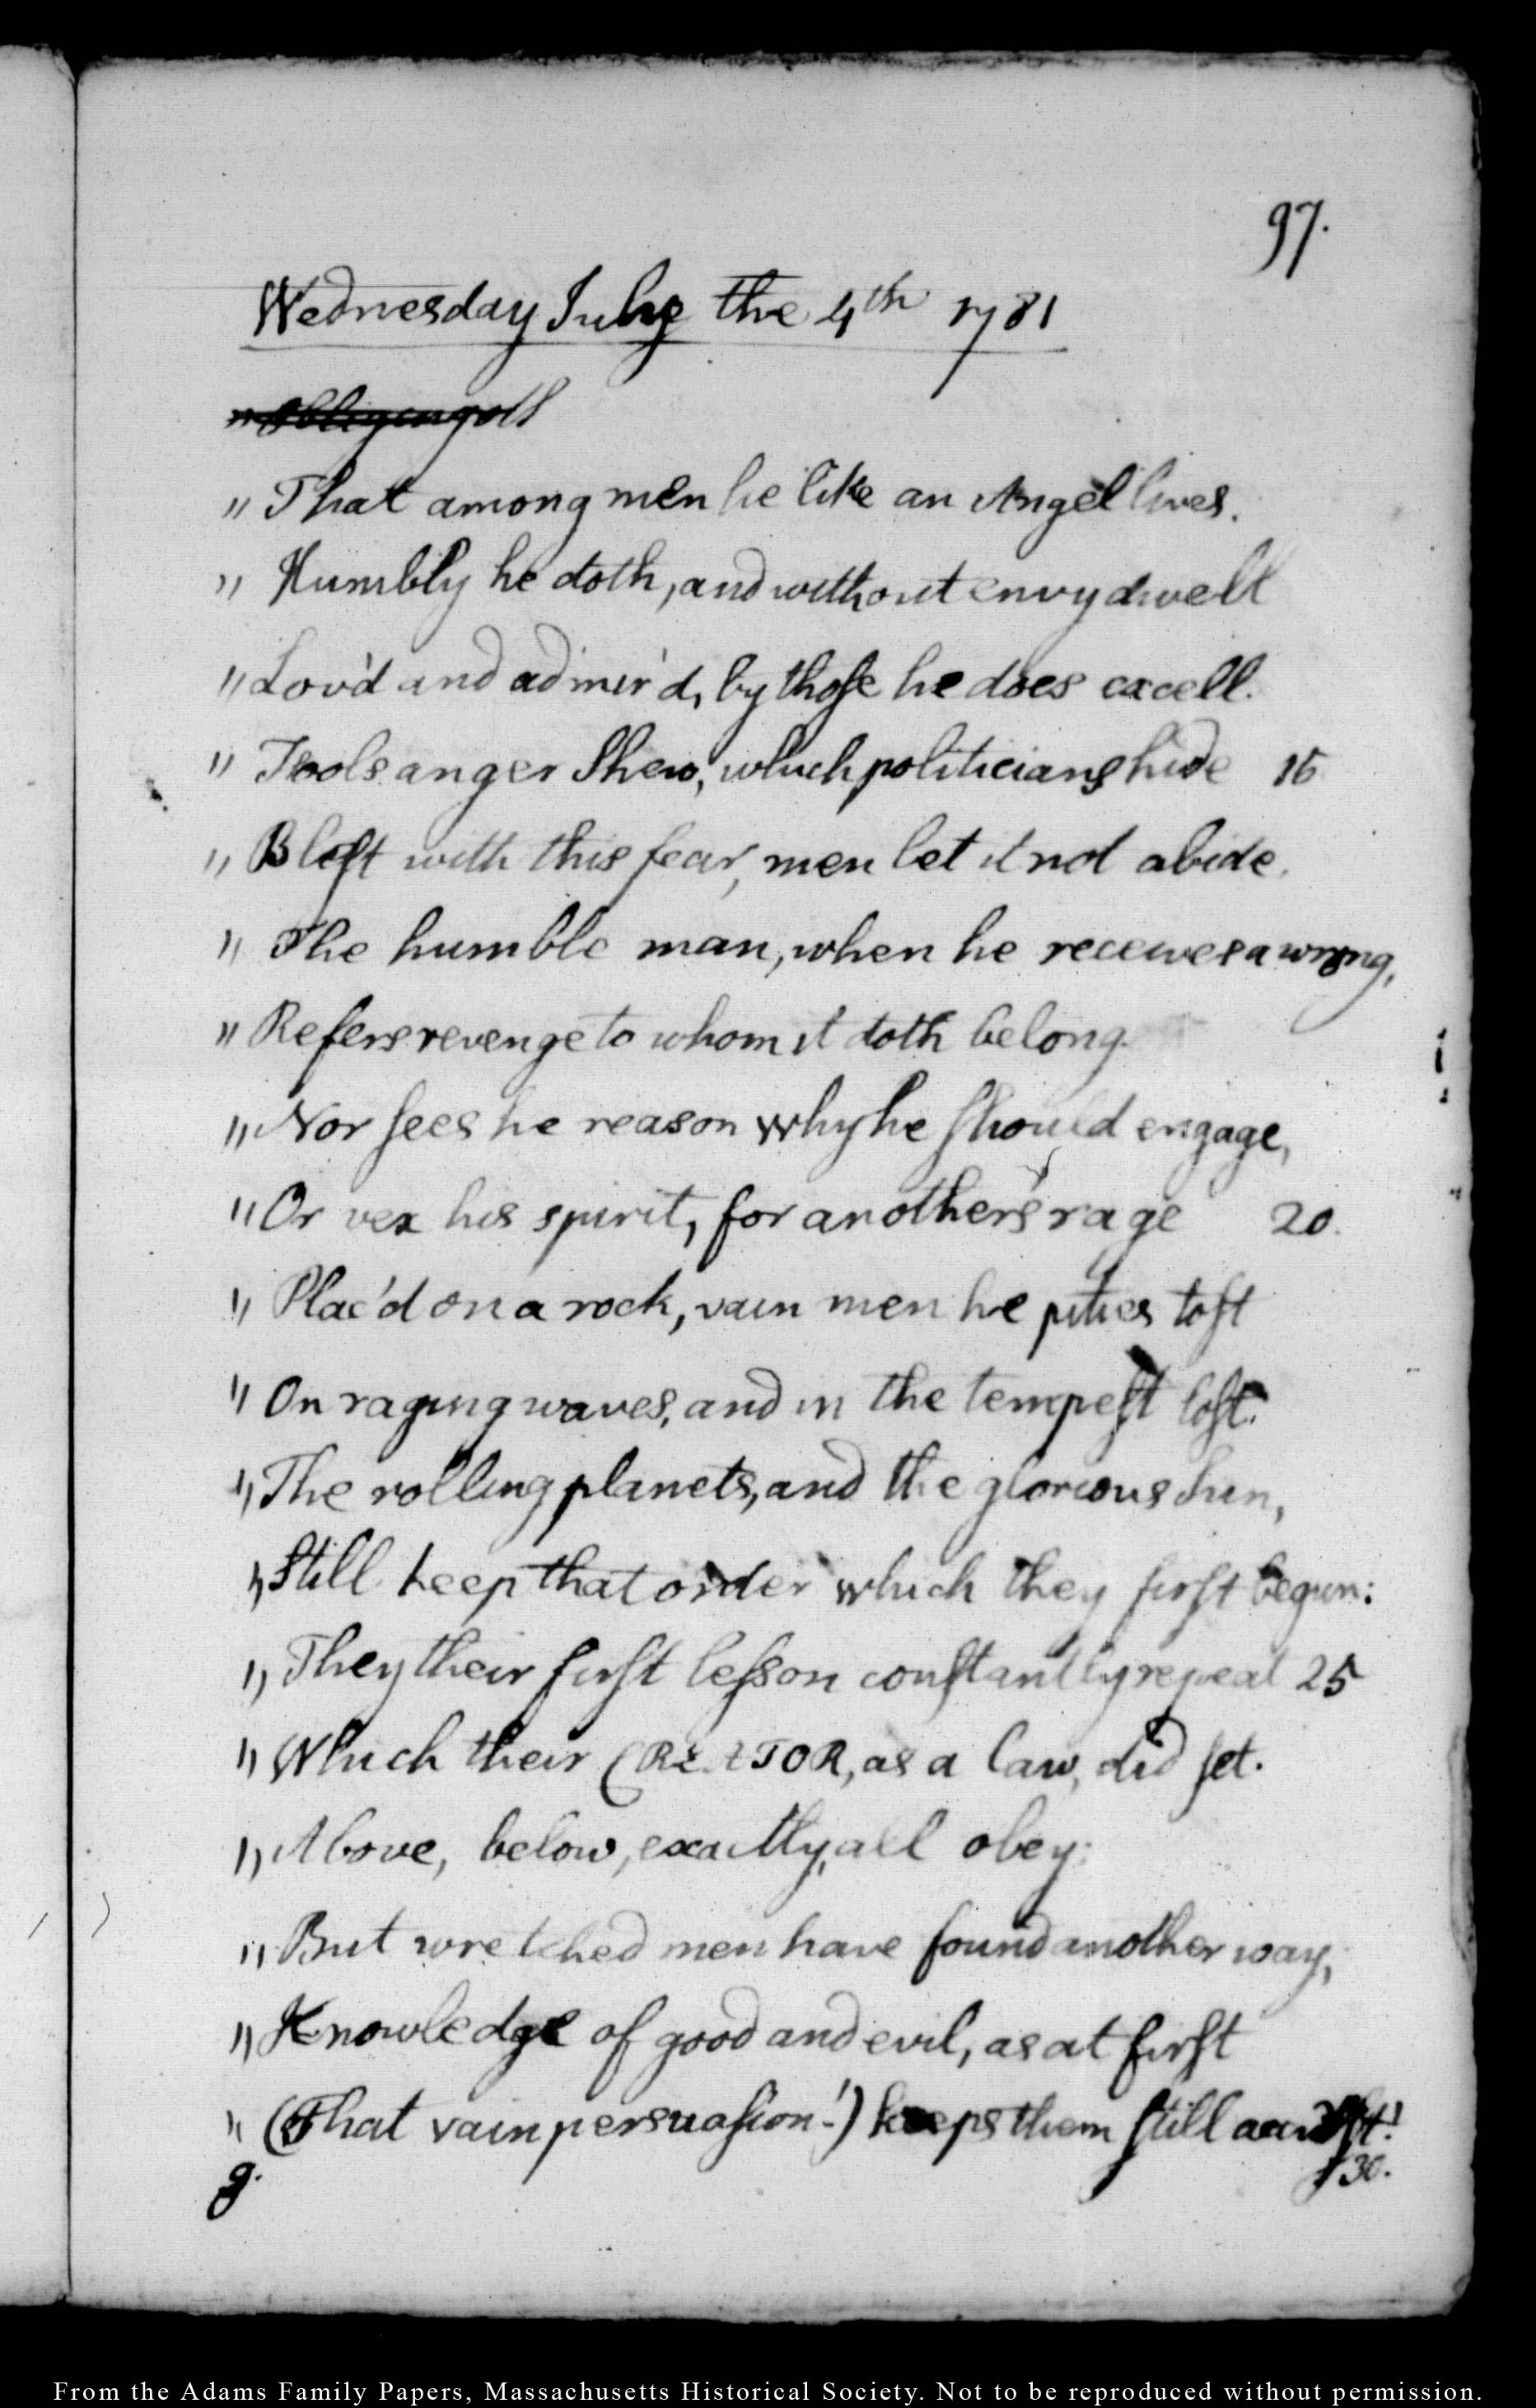 97.
Wednesday July the 4th 1781
" That among men he like an Angel lives.
" Humbly he doth, and without envy dwell
" Lov'd and admir'd, by those he does excell.
" Fools anger shew, which politicians hide 15
" Blest with this fear, men let it not abide.
" The humble man, when he receives a wrong,
" Refers revenge to whom it doth belong.
" Nor sees he reason why he should engage,
" Or vex his spirit, for another's rage 20.
" Plac'd on a rock, vain men he pities tost
" On raging waves, and in the tempest lost.
" The rolling planets, and the glorious Sun,
" Still keep that order which they first begun:
" They their first lesson constantly repeat 25
" Which their CREATOR, as a law, did set.
" Above, below, exactly, all obey:
" But wretched men have found another way,
" Knowledge of good and evil, as at first
" (That vain persuasion!) keeps them still
30.
g.
From the Adams Family Papers, Massachusetts Historical Society. Not to be reproduced without permission.